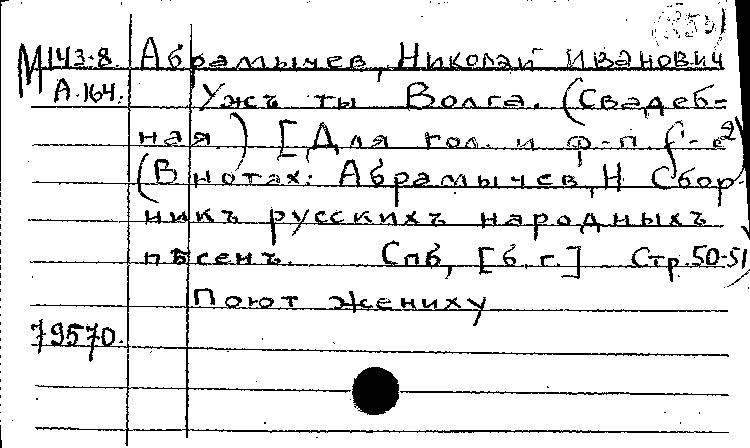 М143-8 Абрамычев, Николай Иванович
А.164. Ужъ ты Волга. (Свадеб=
ная.) [Для гол. и ф-п. f'-e²]
(В нотах: Абрамычев, Н. Сбор-
никъ русскихъ народныхъ
пѣсенъ. Спб, [б. г.] Стр. 50-51)
Поют жениху
79570.